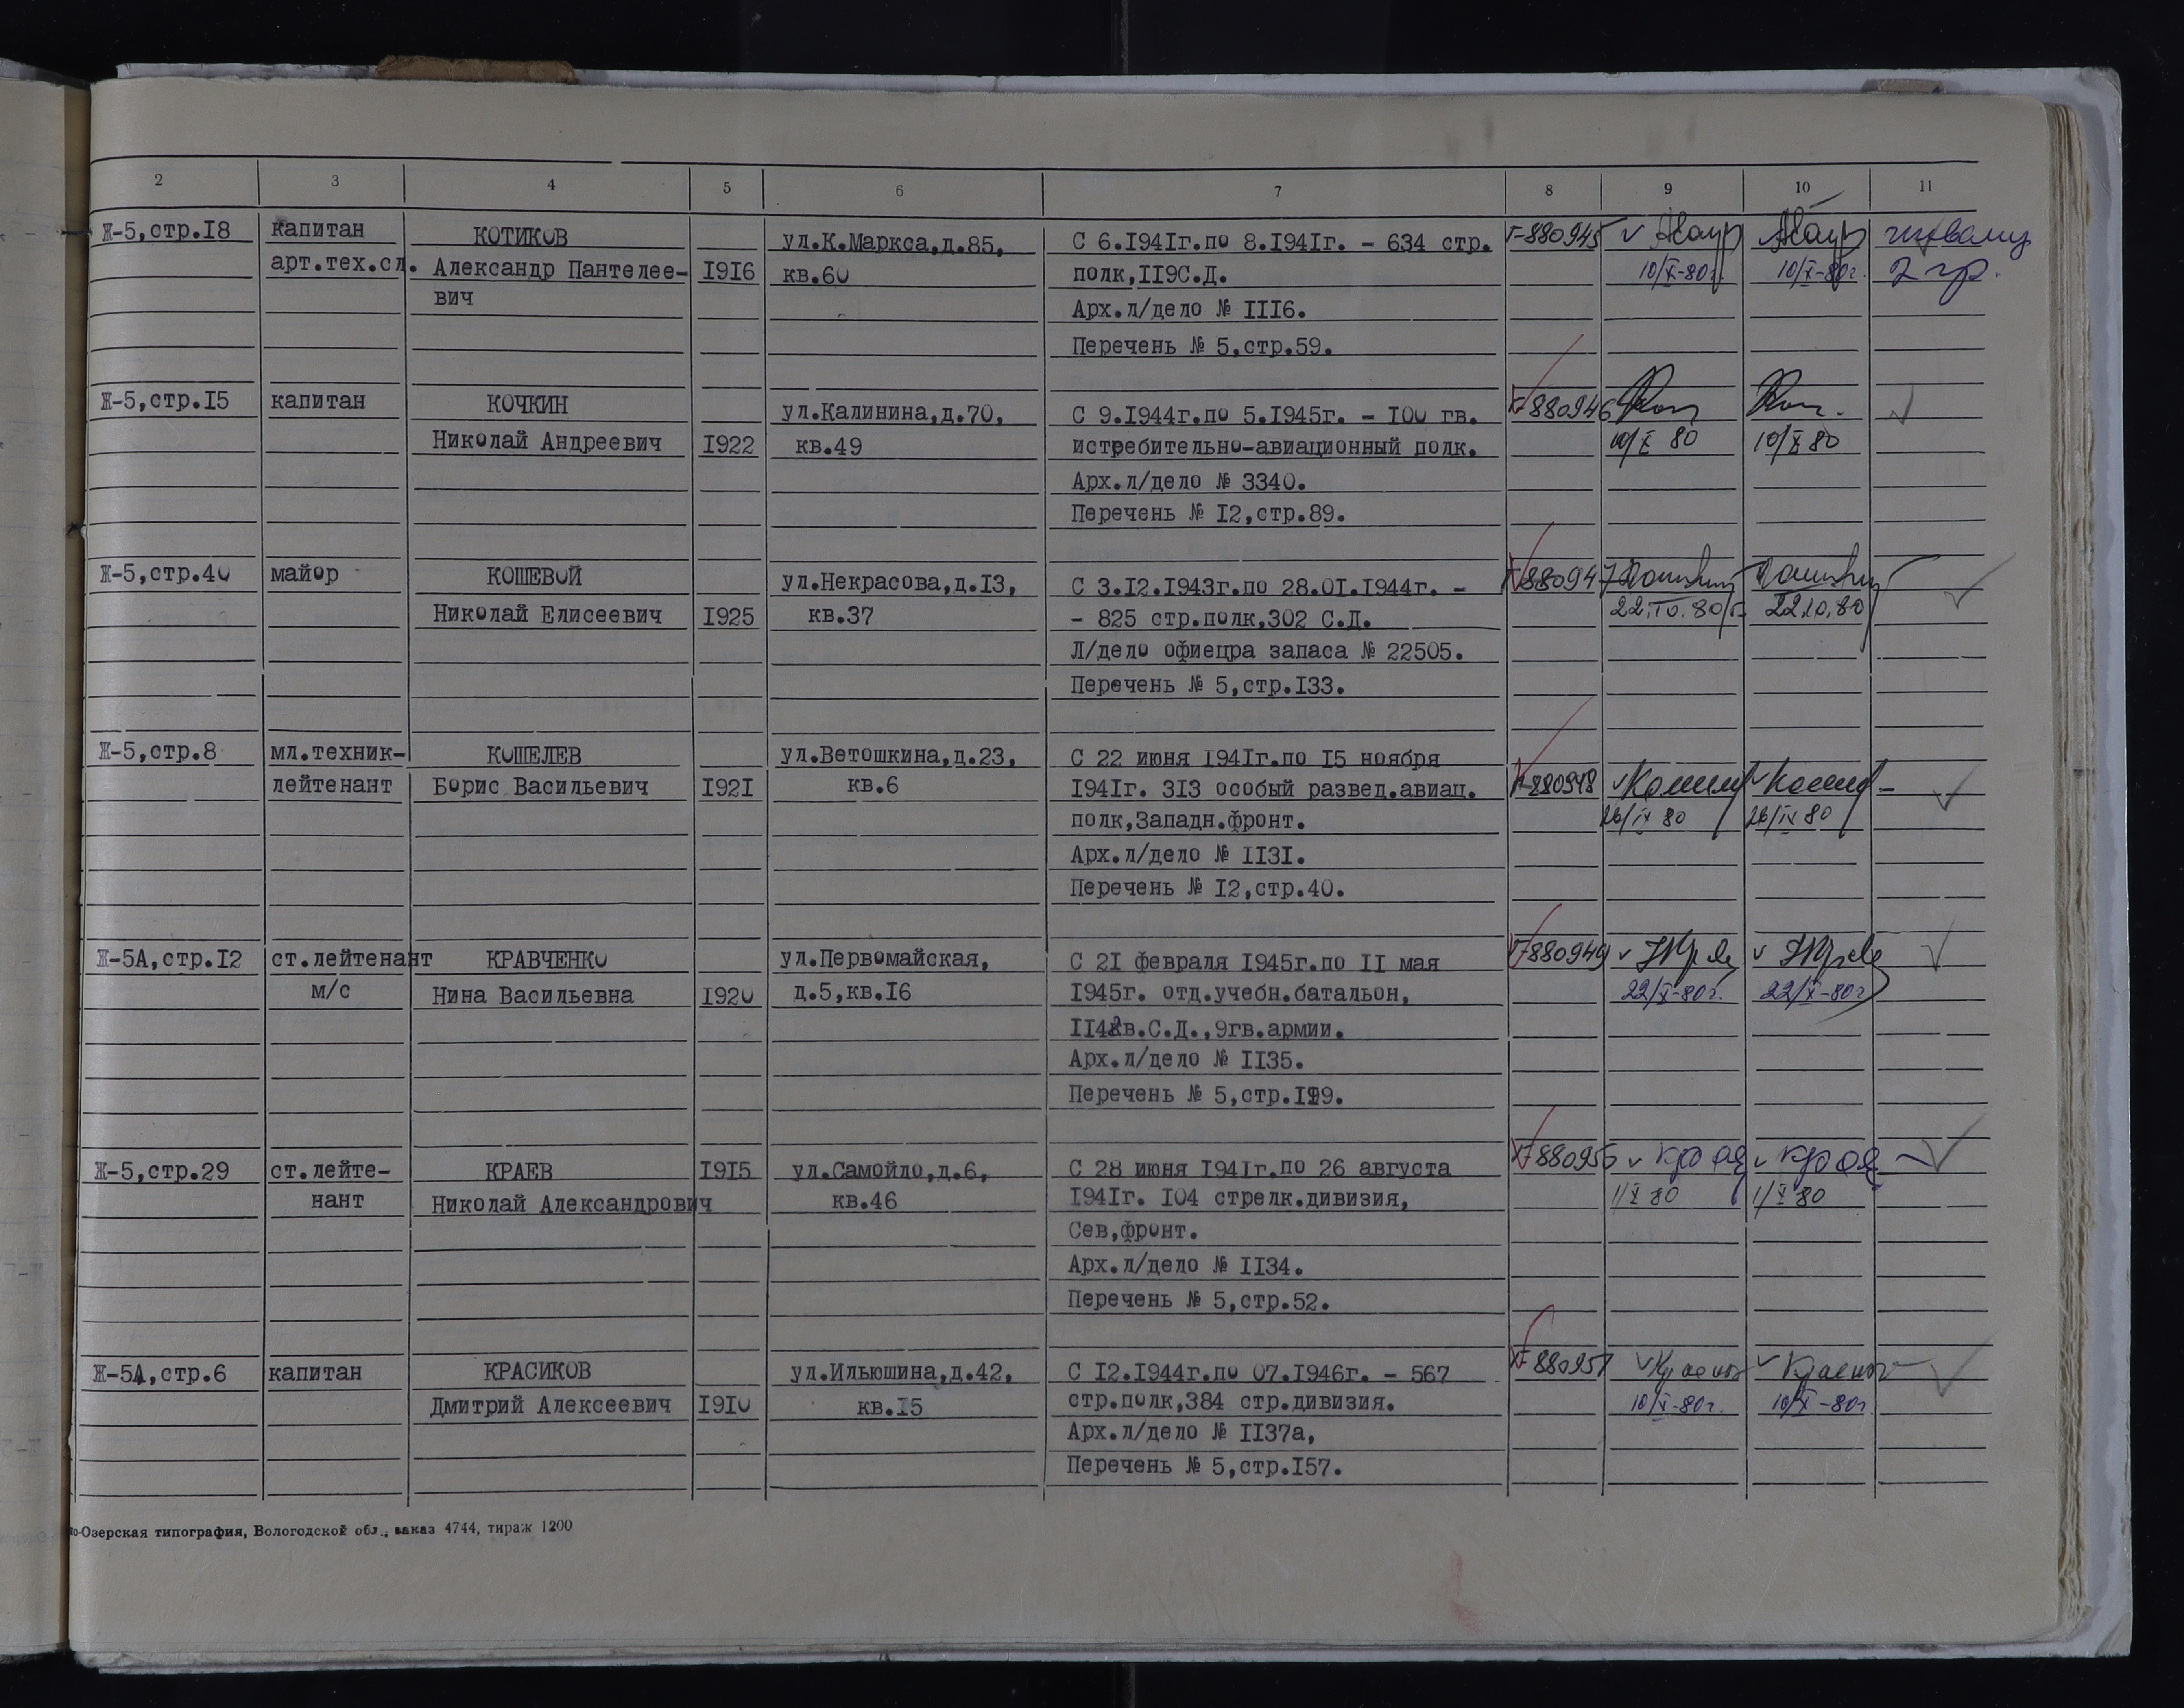 2 3 4 5 6 7 8 9 10 11
Ж-5,стр.I8 капитан КОТИКОВ ул.К.Маркса,д.85, С 6.I94Iг.по 8.I94Iг. - 634 стр. 880945
арт.тех.сл. Александр Пантелее- I9I6 кв.60 полк,II9С.Д. 10/X-80г. 10/X-80г. 2 гр.
вич Арх.л/дело № III6.
Перечень № 5,стр.59.
Ж-5,стр.I5 капитан КОЧКИН ул.Калинина,д.70, С 9.I944г.по 5.I945г. - I00 гв. 880946
Николай Андреевич I922 кв.49 истребительно-авиационный полк. 10/X 80 10/X 80
Арх.л/дело № 3340.
Перечень № I2,стр.89.
Ж-5,стр.40 майор КОШЕВОЙ ул.Некрасова,д.I3, С 3.I2.I943г.по 28.0I.I944г. - 880947
Николай Елисеевич I925 кв.37 - 825 стр.полк,302 С.Д. 22.10.80г. 22.10.80
Л/дело офиецра запаса № 22505.
Перечень № 5,стр.I33.
Ж-5,стр.8 мл.техник- КОШЕЛЕВ ул.Ветошкина,д.23, С 22 июня I94Iг.по I5 ноября
лейтенант Борис Васильевич I92I кв.6 I94Iг. 3I3 особый развед.авиац. 880948
полк,Западн.фронт. 26/IX 80 26/IX 80
Арх.л/дело № II3I.
Перечень № I2,стр.40.
Ж-5А,стр.I2 ст.лейтенант КРАВЧЕНКО ул.Первомайская, С 2I февраля I945г.по II мая 880949
м/с Нина Васильевна I920 д.5,кв.I6 I945г. отд.учебн.батальон, 22/X-80г. 22/X-80г
II4гв.С.Д.,9гв.армии.
Арх.л/дело № II35.
Перечень № 5,стр.
Ж-5,стр.29 ст.лейте- КРАЕВ I9I5 ул.Самойло,д.6, С 28 июня I94Iг.по 26 августа 880956
нант Николай Александрович кв.46 I94Iг. I04 стрелк.дивизия, 1/X 80 1/X 80
Сев,фронт.
Арх.л/дело № II34.
Перечень № 5,стр.52.
Ж-5А,стр.6 капитан КРАСИКОВ ул.Ильюшина,д.42, С I2.I944г.по 07.I946г. - 567 880957
Дмитрий Алексеевич I9I0 кв.I5 стр.полк,384 стр.дивизия. 10/X-80г. 10/X-80г
Арх.л/дело № II37а,
Перечень № 5,стр.I57.
о-Озерская типография, Вологодской обл., заказ 4744, тираж 1200